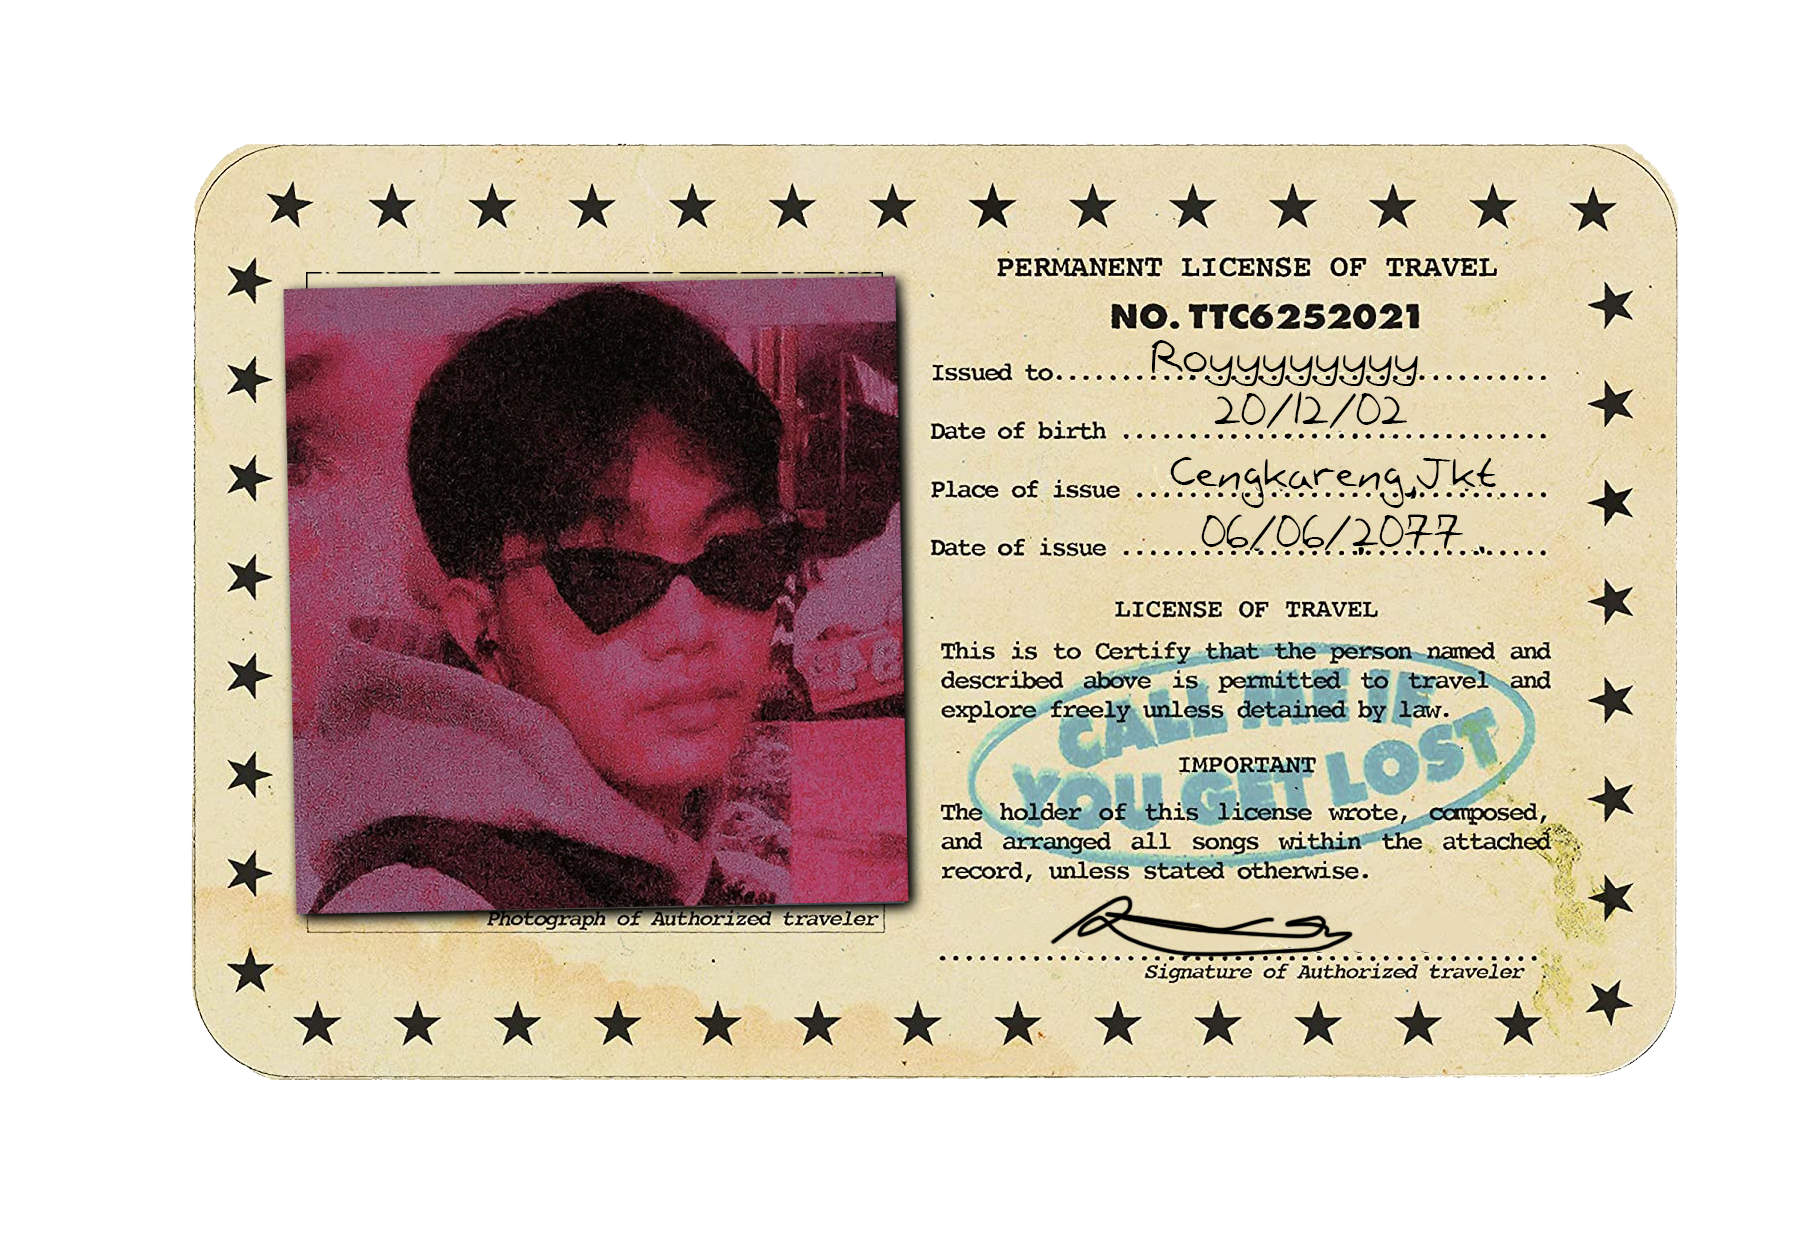 PERMANENT LICENSE OF TRAVEL
NO. TTC6252021
Issued to Royyyyyyyyy
Date of birth 20/12/02
Place of issue Cengkareng, Jkt
Date of issue 06/06/2077
LICENSE OF TRAVEL
This is to Certify that the person named and
described above is permitted to travel and
explore freely unless detained by law.
CALL ME IF
YOU GET LOST
IMPORTANT
The holder of this license wrote, composed,
and arranged all songs within the attached
record, unless stated otherwise.
Photograph of Authorized traveler
Signature of Authorized traveler